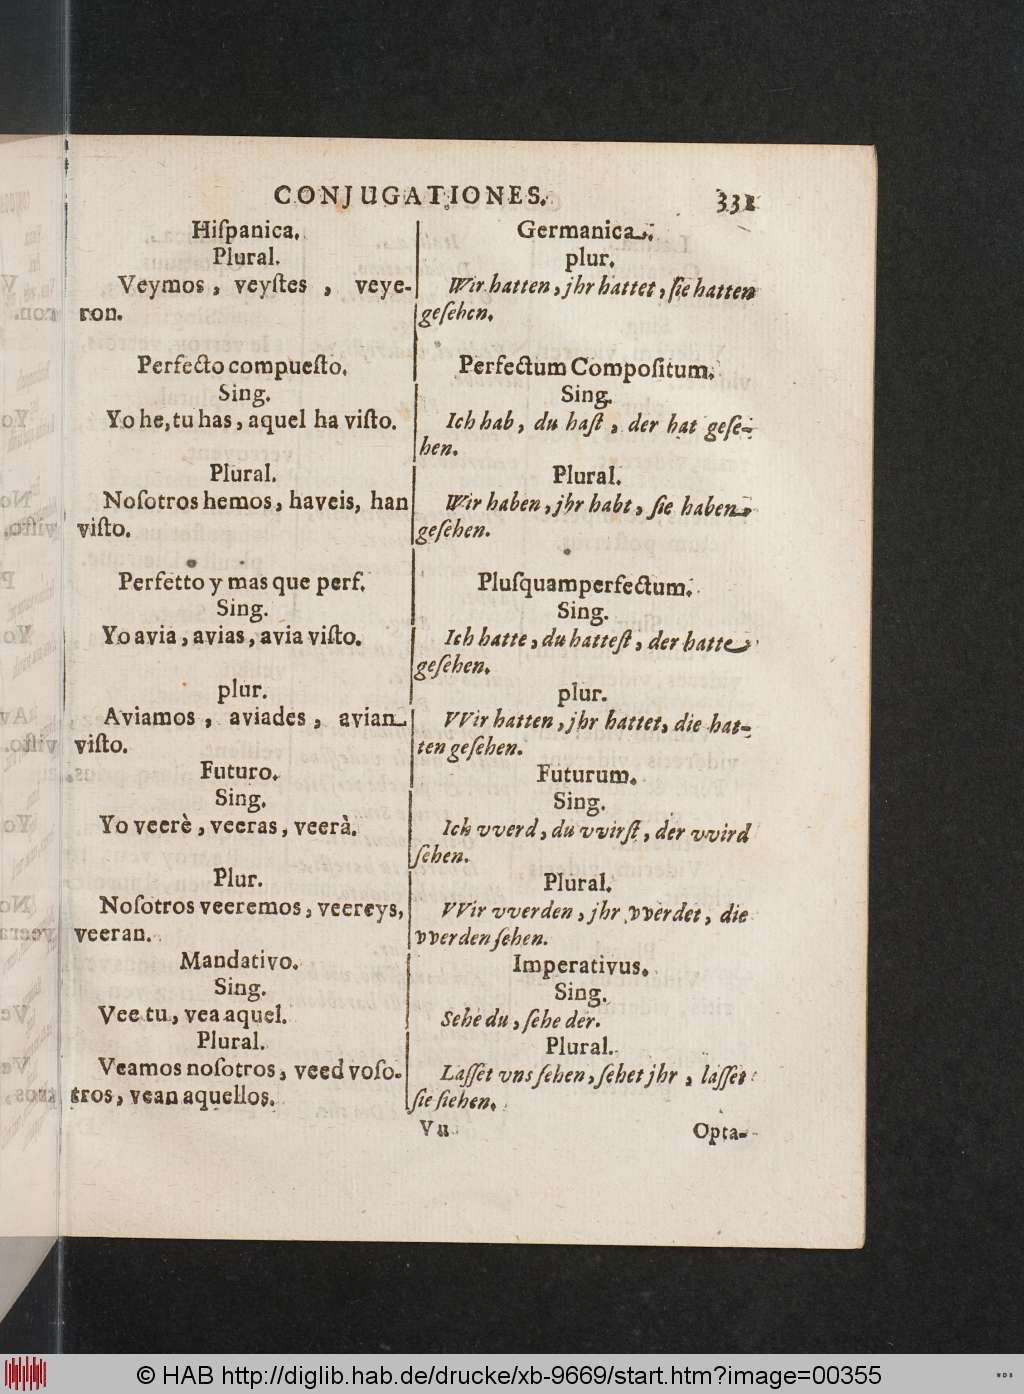 CONJUGATIONES. 331
Hiſpanica.
Plural.
Veymos, veyſtes, veye-
ron.
Perfecto compueſto.
Sing.
Yo he, tu has, aquel ha viſto.
Plural.
Noſotros hemos, haveis, han
viſto.
Perfetto y mas que perf.
Sing.
Yo avia, avias, avia viſto.
plur.
Aviamos, aviades, avian
viſto.
Futuro.
Sing.
Yo veerè, veeras, veerà.
Plur.
Noſotros veeremos, veereys,
veeran.
Mandativo.
Sing.
Vee tu, vea aquel.
Plural.
Veamos noſotros, veed voſo-
tros, vean aquellos.
Germanica.
plur.
Wir hatten, jhr hattet, ſie hatten
geſehen.
Perfectum Compoſitum.
Sing.
Ich hab, du haſt, der hat geſe-
hen.
Plural.
Wir haben, jhr habt, ſie haben
geſehen.
Pluſquamperfectum.
Sing.
Ich hatte, du hatteſt, der hatte
geſehen.
plur.
VVir hatten, jhr hattet, die hat-
ten geſehen.
Futurum.
Sing.
Ich vverd, du vvirſt, der vvird
ſehen.
Plural.
VVir vverden, jhr vverdet, die
vverden ſehen.
Imperativus.
Sing.
Sehe du, ſehe der.
Plural.
Laſſet vns ſehen, ſehet jhr, laſſet
ſie ſiehen.
Vu Opta-
© HAB http://diglib.hab.de/drucke/xb-9669/start.htm?image=00355